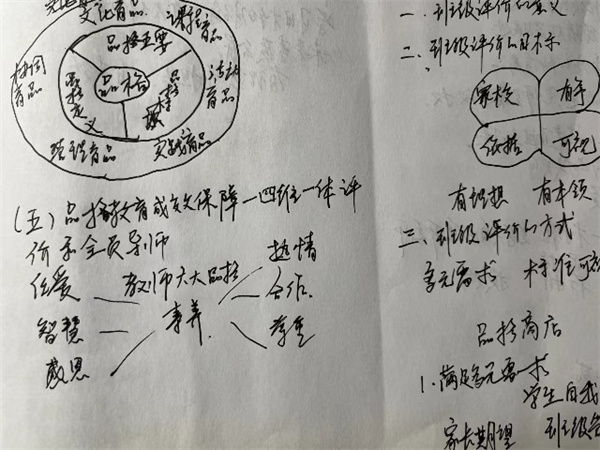 文化育品
课程育品
协同育品
活动育品
管理育品
实践育品
品格重要
品格定义
品格
(五)品格教育成效保障一四维一体评
价和全员导师
仁爱
智慧
感恩
教师六大品格
素养
热情
合作
尊重
一、班级评价的意义
二、班级评价的目标
家校
有手
依据
可视
有理想 有本领
三、班级评价的方式
多元需求 标准可
品格商店
1.满足多元需求
学生自我
家长期望
班级